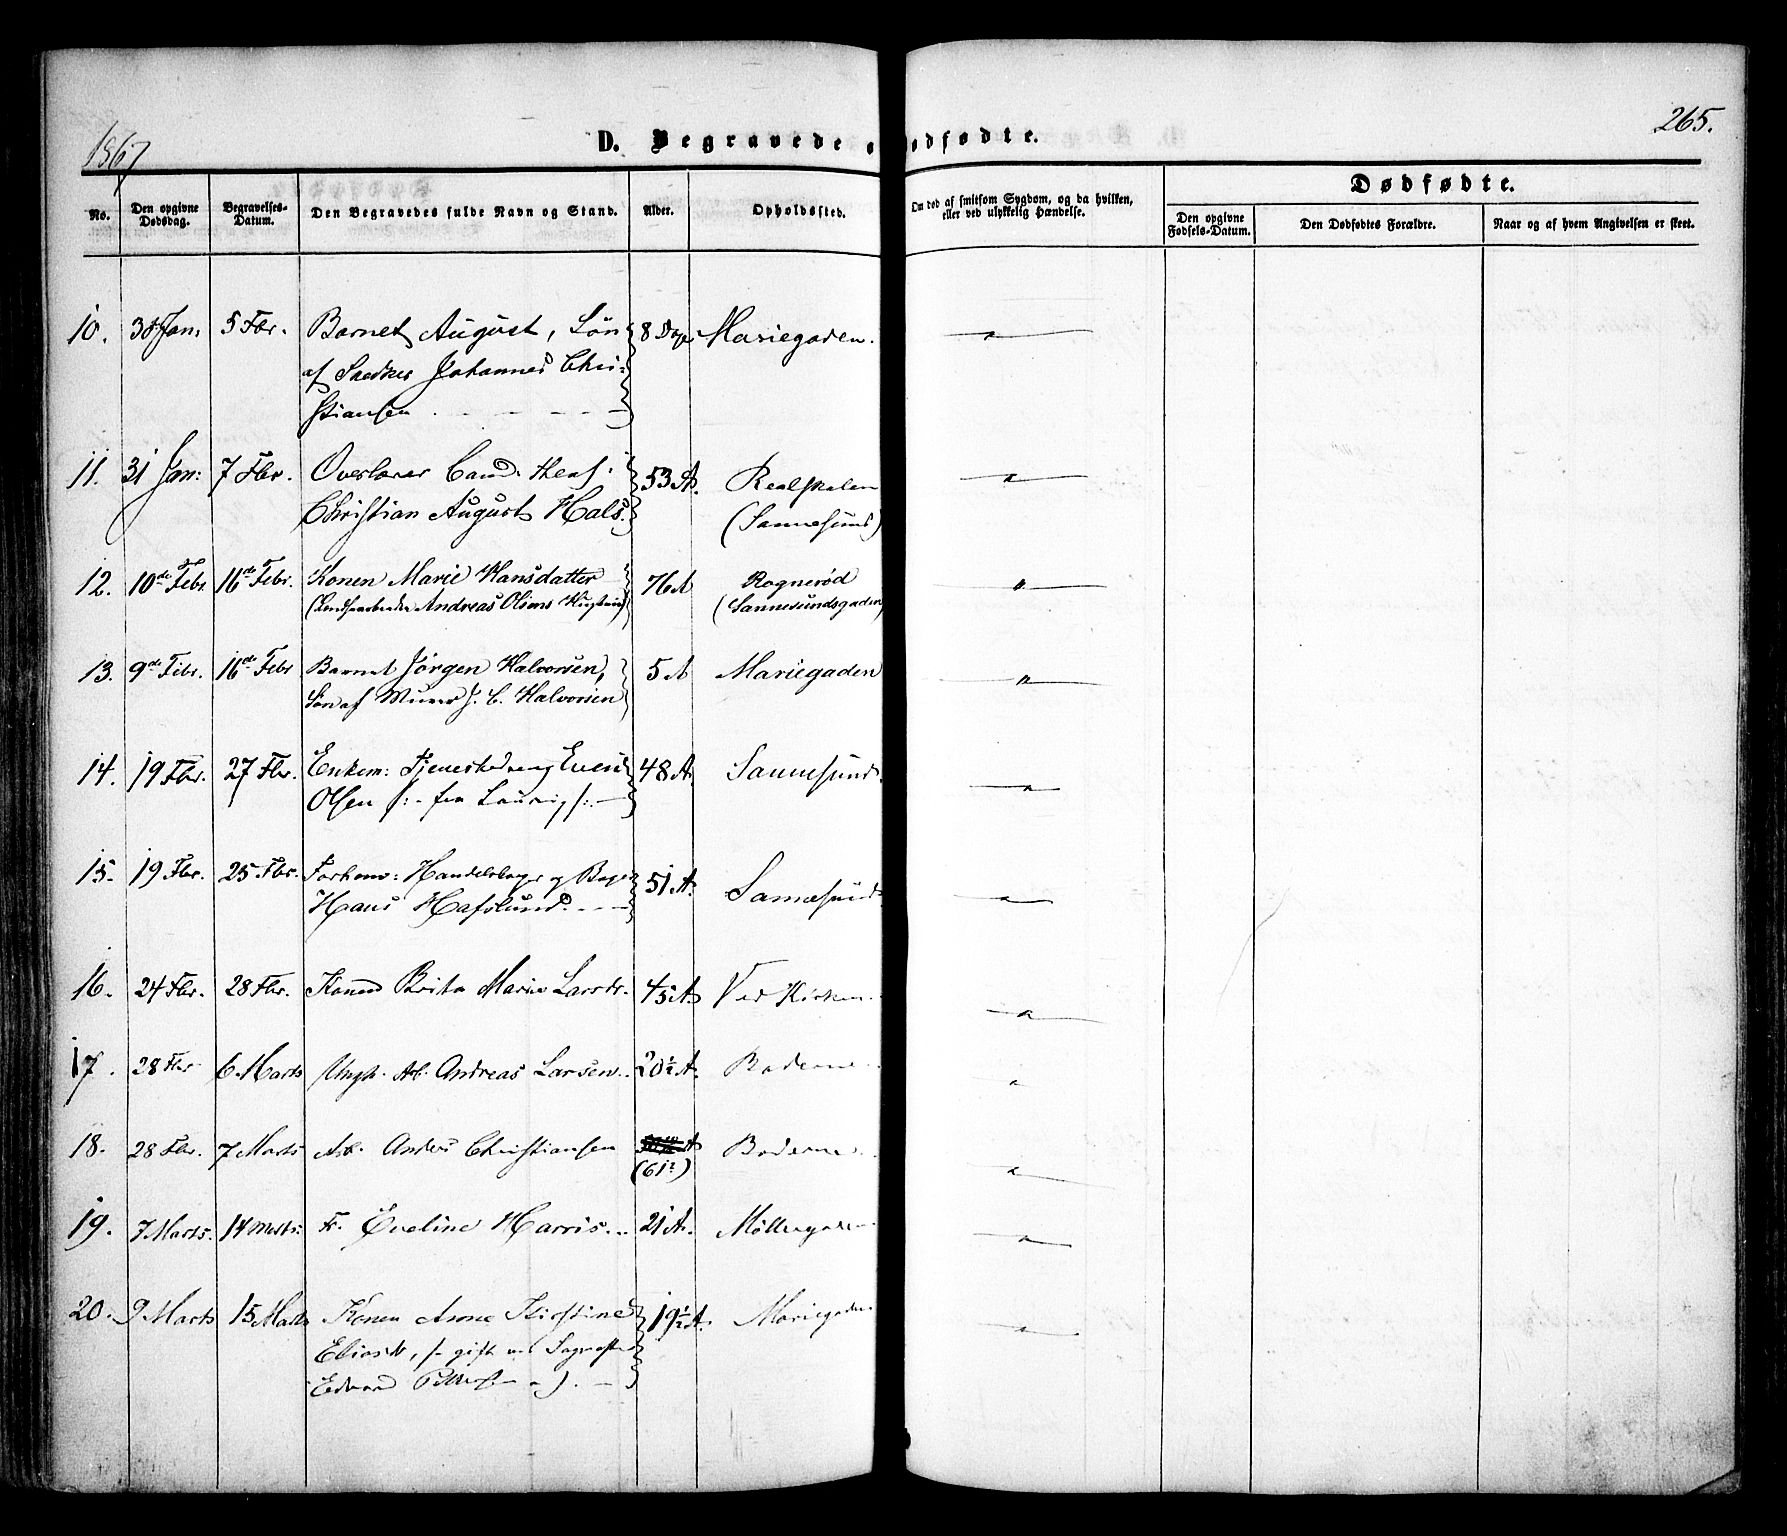 1867
D. Begravede o
ødfødte.
265.
No.
Den opgivne Dødsdag.
Begravelses-Datum.
Den Begravedes fulde Navn og Stand.
Alder.
Opholdssted.
Om død af smitsom Sygdom, og da hvilken, eller ved ulykkelig Hændelse.
Dødfødte.
Den opgivne Fødsels-Datum.
Den Dødfødtes Forældre.
Naar og af hvem Angivelsen er skeet.
10. Jan: 5 Fbr. Barnet August, Søn 8 Dage Mariegaden. "
af Snedker Johannes Chri-
stiansen
11. 31 Jan: 7 Fbr. Overlærer Cand. theol. 53 A. Realskolen "
Christian August Hals. (Sannesund)
12. 10de Febr. 16de Febr. Konen Marie Hansdatter 76 A Rognerød "
Andreas Olsens (Sannesundsgaden)
13. 9de Febr. 16de Febr Barnet Jørgen Halvorsen, 5 A Mariegaden "
Søn af Murer J. C. Halvorsen
14. 19 Fbr. 27 Fbr. Enkem: Even 48 A. Sannesund. "
Olsen /:- fra Laurvig /:-
15. 19 Fbr. 25 Fbr. Handelsborger og Bager 51 A. Sannesund. "
Hans Hafslund.
16. 24 Fbr. 28 Fbr. Konen Brita Marie Larsdr. 45 A. Ved Kirken. "
17. 28 Fbr 6 Marts Ungk. Arb. Andreas Larsen. 20 1/2 A. Boderne. "
18. 28 Fbr. 7 Marts Arb. Anders Christiansen A Boderne. "
19. 7 Marts. 14 Marts. Fr. Eveline Harris. 21 A. Møllergaden "
20. 9 Marts 15 Marts Konen Anne Kirstine 19 1/2 A. Mariegaden "
/- gift m
Edvard